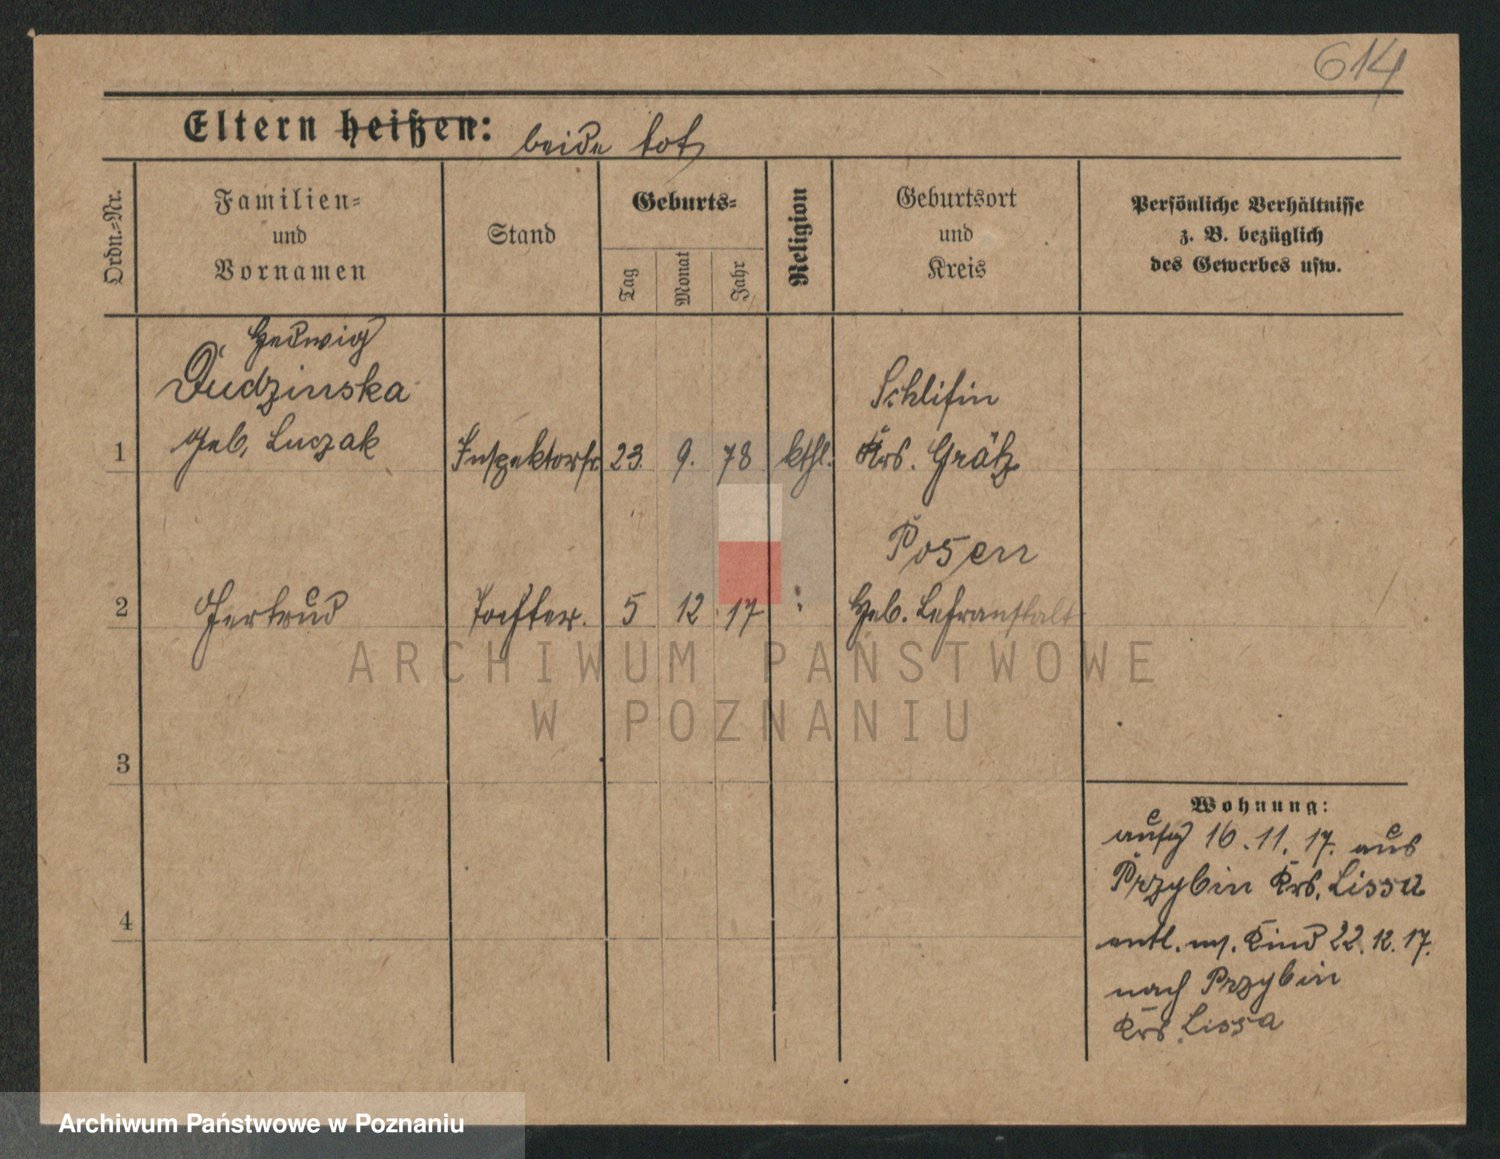 614
Eltern heißen: beide tot
Ordn.-Nr.
Familien-
und
Vornamen
Stand
Geburts-
Tag
Monat
Jahr
Religion
Geburtsort
und
Kreis
Persönliche Verhältnisse
z. B. bezüglich
des Gewerbes usw.
Hedwig
Dudzinska
geb. Luczak
1
Inspektorfr.
23.
9.
78
kthl.
Schlifin
Krs. Grätz
2
Gertrud
Tochter.
5
12
17
Posen
Heb. Lehranstalt
3
4
Wohnung:
aufg 16.11.17. aus
Przybin Krs. Lissa
entl. m. Kind 22.12.17.
nach Przybin
Krs. Lissa
ARCHIWUM PAŃSTWOWE
W POZNANIU
Archiwum Państwowe w Poznaniu